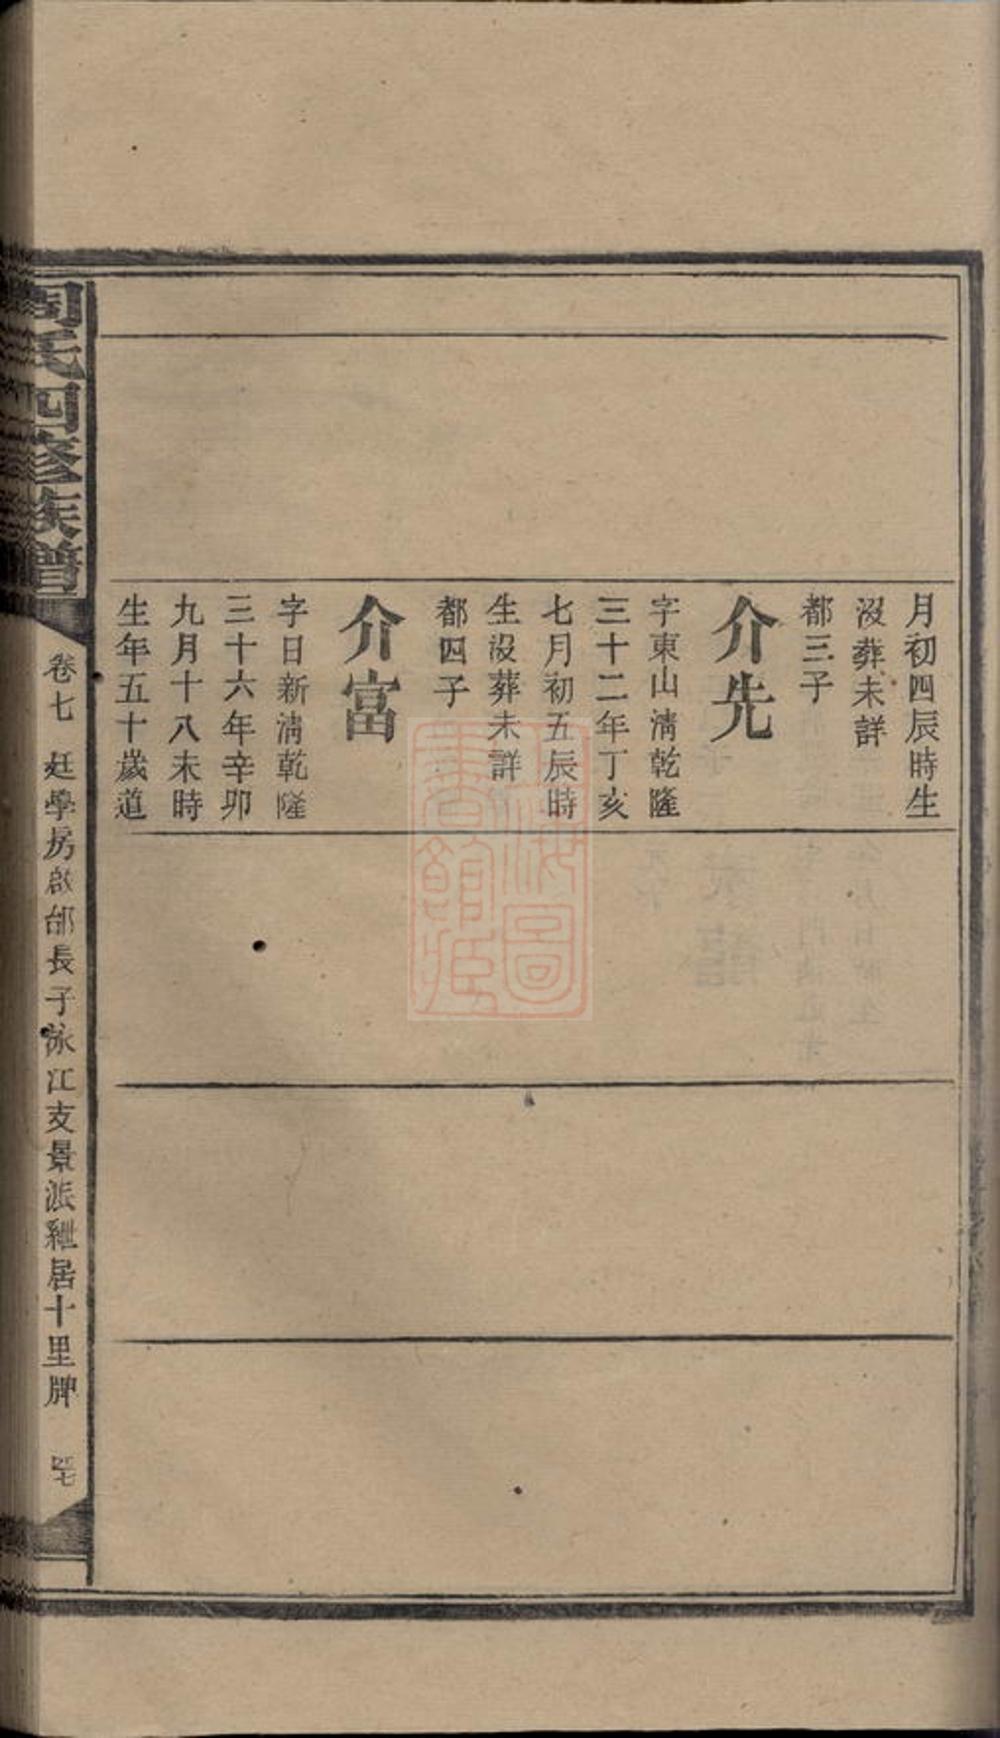 月初四辰時生
沒葬未詳
都三子
介先
字東山淸乾隆
三十二年丁亥
七月初五辰時
生沒葬未詳
都四子
介富
字日新淸乾隆
三十六年辛卯
九月十八未時
生年五十歲道
周氏四修族譜
卷七 廷學房啟邰長子泳江支景派繼居十里牌
上海圖書館藏